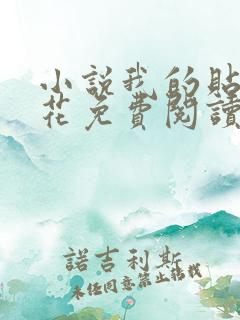 小說我的貼
花免費閱讀
諾吉利斯
未经同意禁止转载